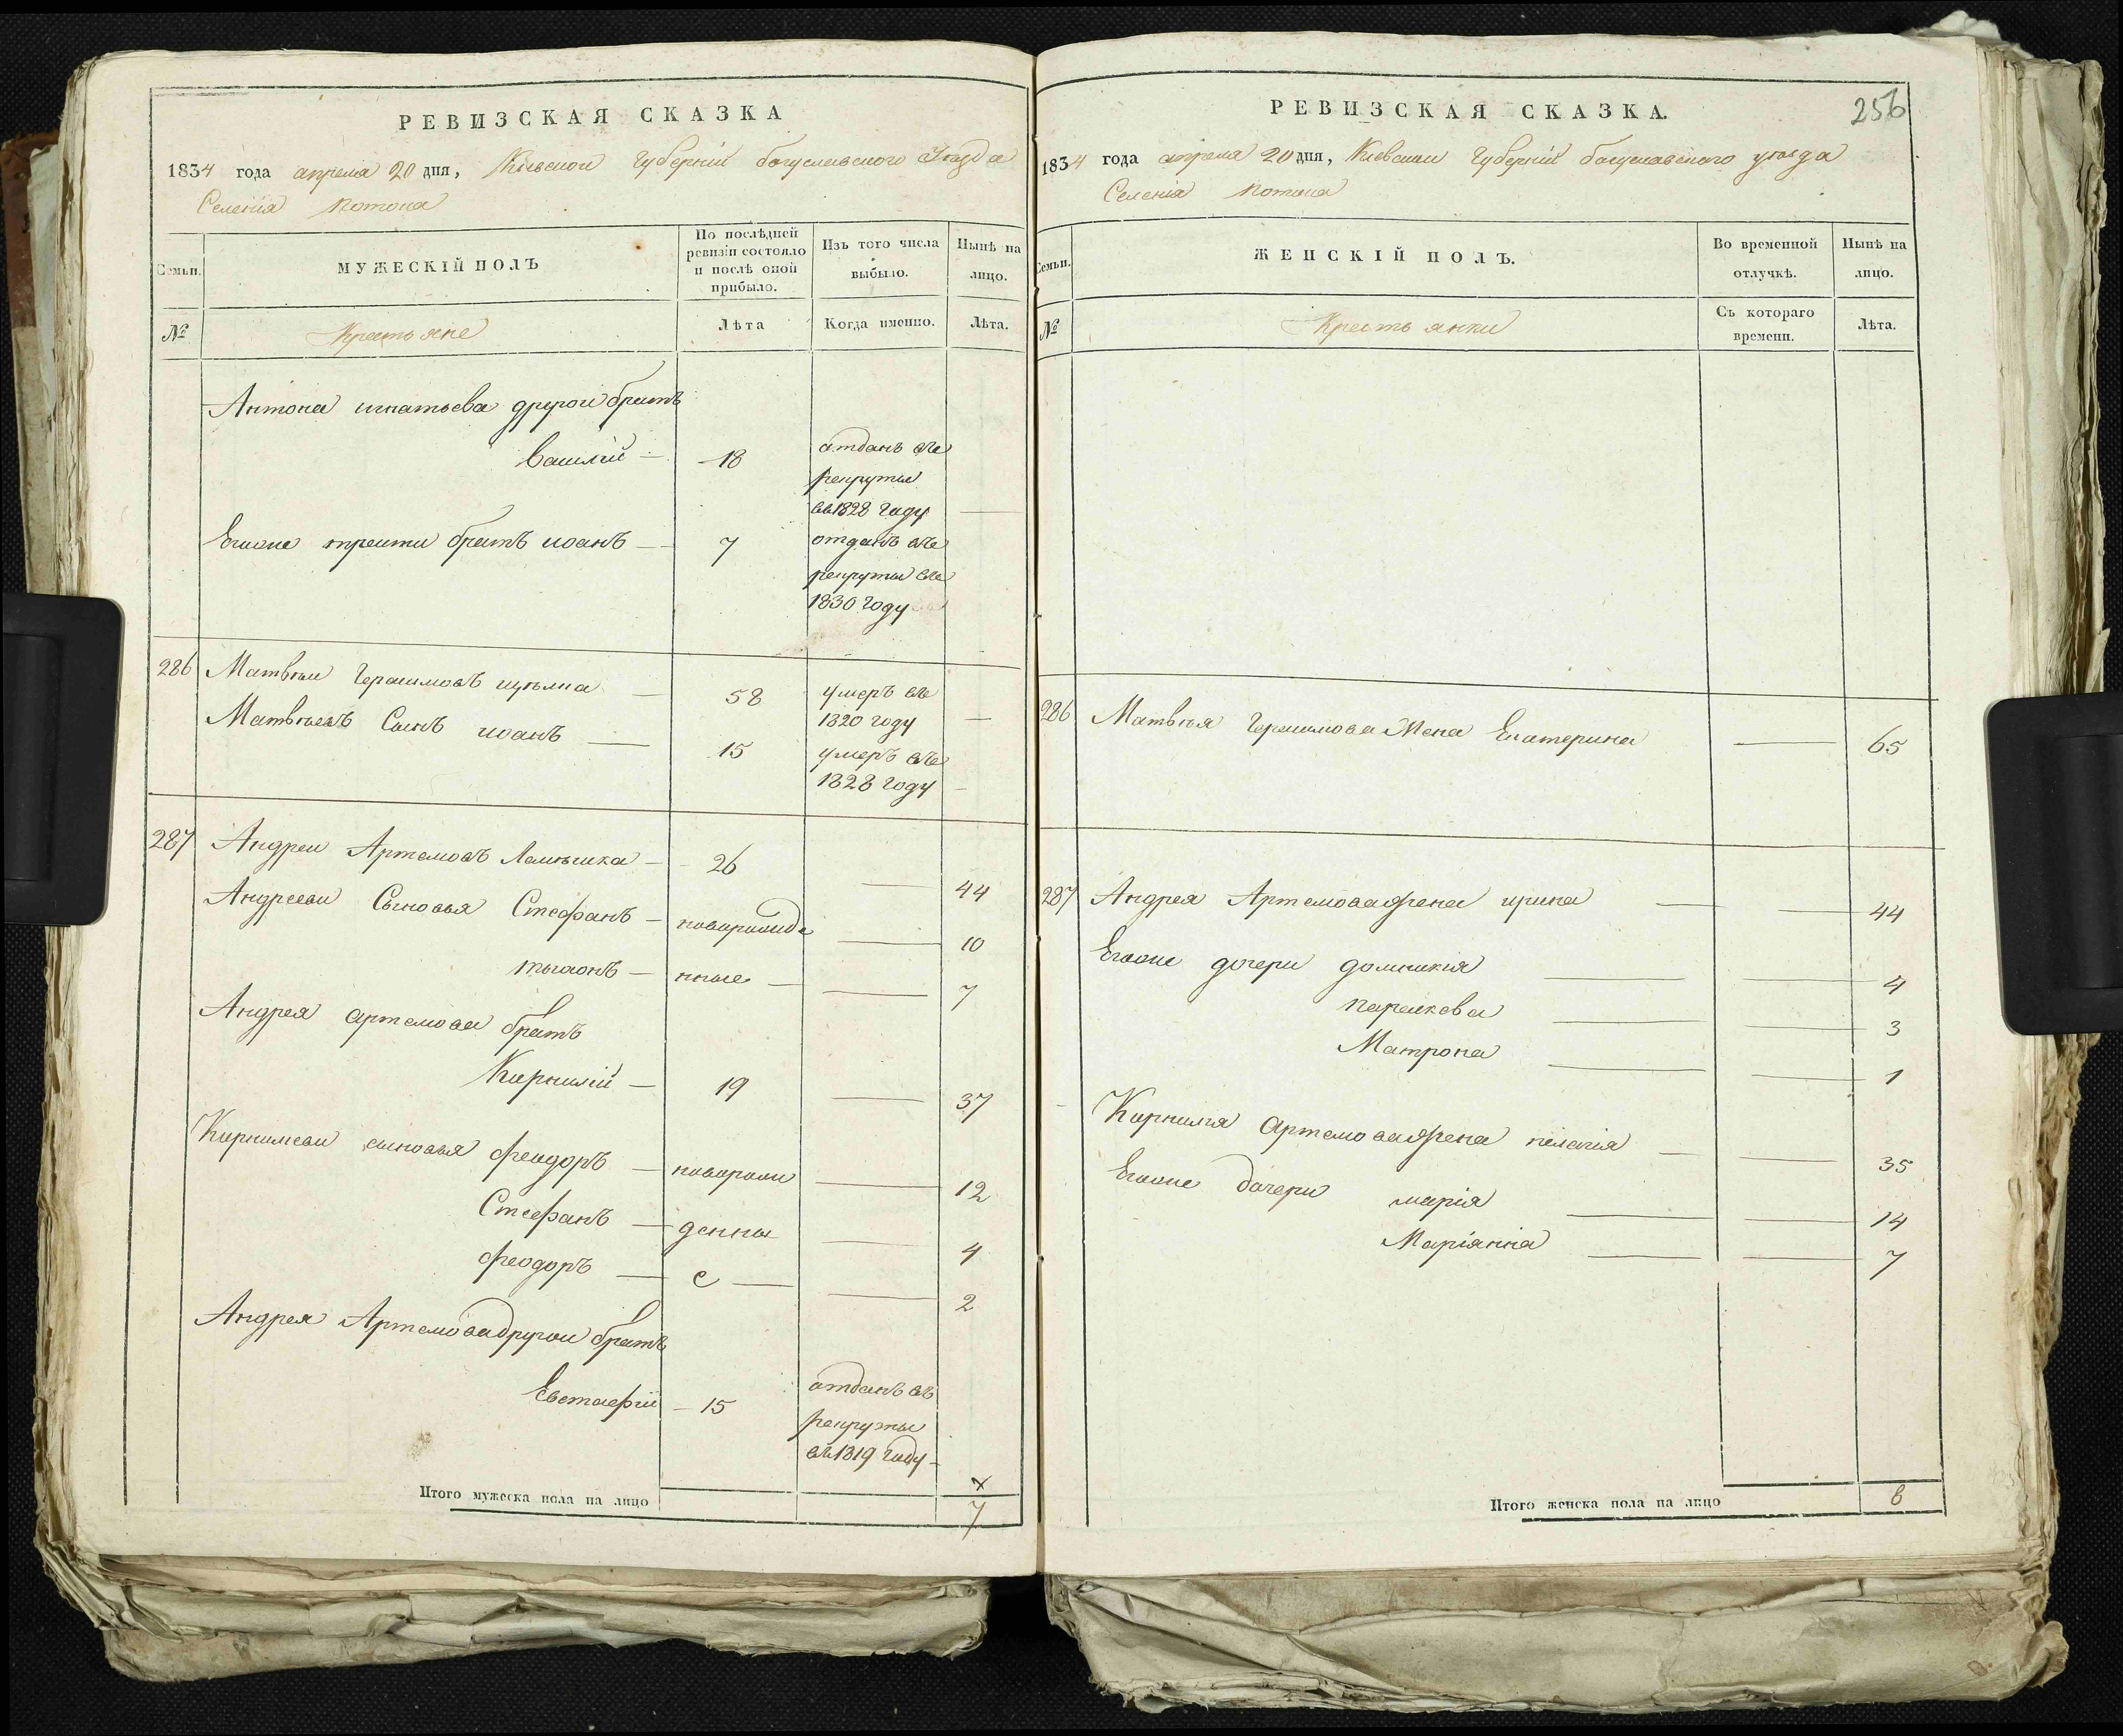 РЕВИЗСКАЯ СКАЗКА
1834 года апреля 20 дня, Кіевской губерніи богуславского уезда
Селенія Потока
Семьи.
МУЖЕСКІЙ ПОЛЪ
По послѣдней ревизіи состояло и послѣ оной прибыло.
Изъ того числа выбыло.
Нынѣ на лицо.
№
Крестьяне
Лѣта
Когда именно.
Лѣта.
Антона игнатьева другои братъ
василій — 18 отданъ въ
рекруты
въ 1828 году —
Егоже третии братъ иоанъ — 7 отданъ въ
рекруты въ
1830 году
286 Матвеи Герасимовъ — 58 умеръ въ
1820 году —
Матвеевъ Сынъ иоанъ — 15 умеръ въ
1828 году —
287 Андреи Артемовъ — 26 — 44
Андрееви Сыновья Стефанъ — новорожде — 10
— нные — 7
Андрея артемова братъ
Корнилій — 19 — 37
Корнилеви сыновья феодоръ — новорож — 12
Стефанъ — денны — 4
феодоръ — е — 2
Андрея Артемова другои братъ
Евстафіи — 15 отданъ въ
рекруты
въ 1819 году —
Итого мужеска пола на лицо
7
РЕВИЗСКАЯ СКАЗКА.
256
1834 года апреля 20 дня, Кіевскои губерніи богуславского уезда
Селенія Потока
Семьи.
ЖЕНСКІЙ ПОЛЪ.
Во временной отлучкѣ.
Нынѣ на лицо.
№
Крестьянки
Съ котораго времени.
Лѣта.
286 Матвея Герасимова Жена Екатерина — 65
287 Андрея Артемова жена ирина — — 44
Егоже дочери домникія — — 4
параскева — — 3
Матрона — — 1
Корнилія Артемова жена пелагія — — 35
Егоже дочери марія — — 14
Маріянна — — 7
Итого женска пола на лицо 8